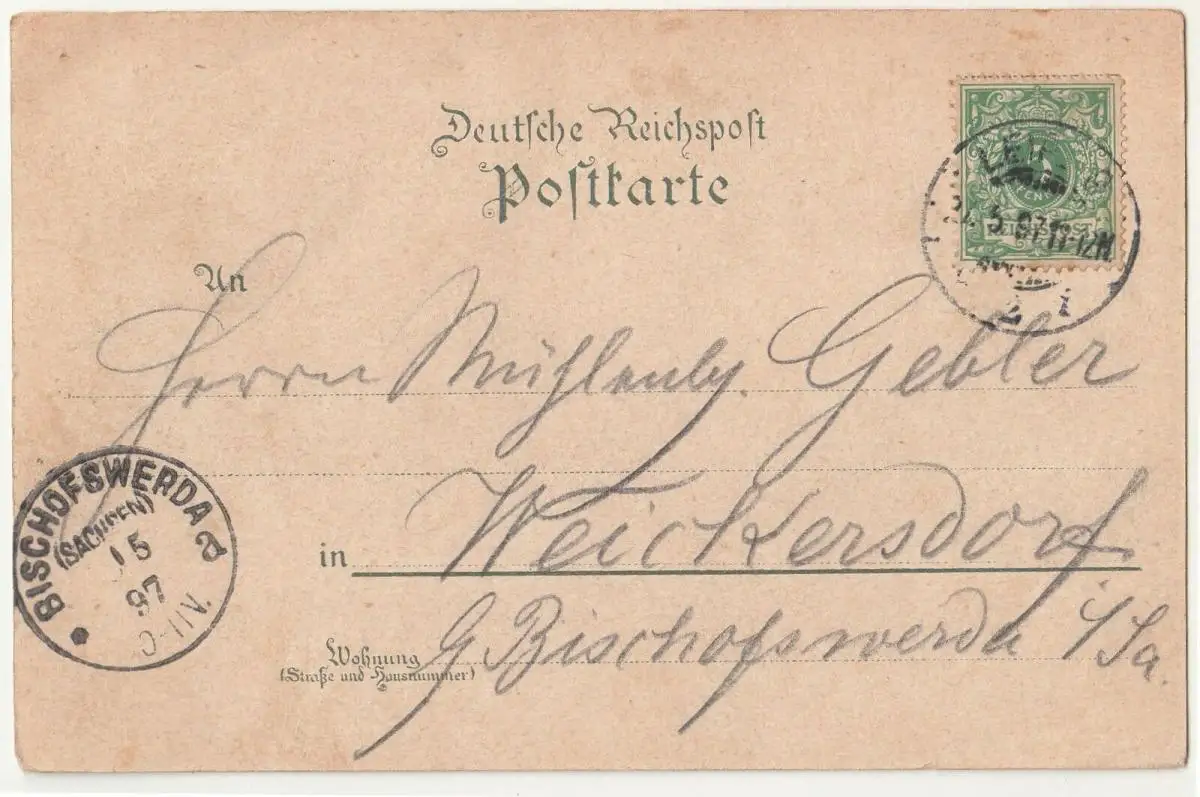 Deutsche Reichspost
Postkarte
REICHSPOST
5. 97 11-12N.
An
Herrn Mühlenby. Gebler
BISCHOFSWERDA a
(SACHSEN)
5
97
in Weickersdorf
Wohnung
(Straße und Hausnummer)
G Bischofswerda i/Sa.